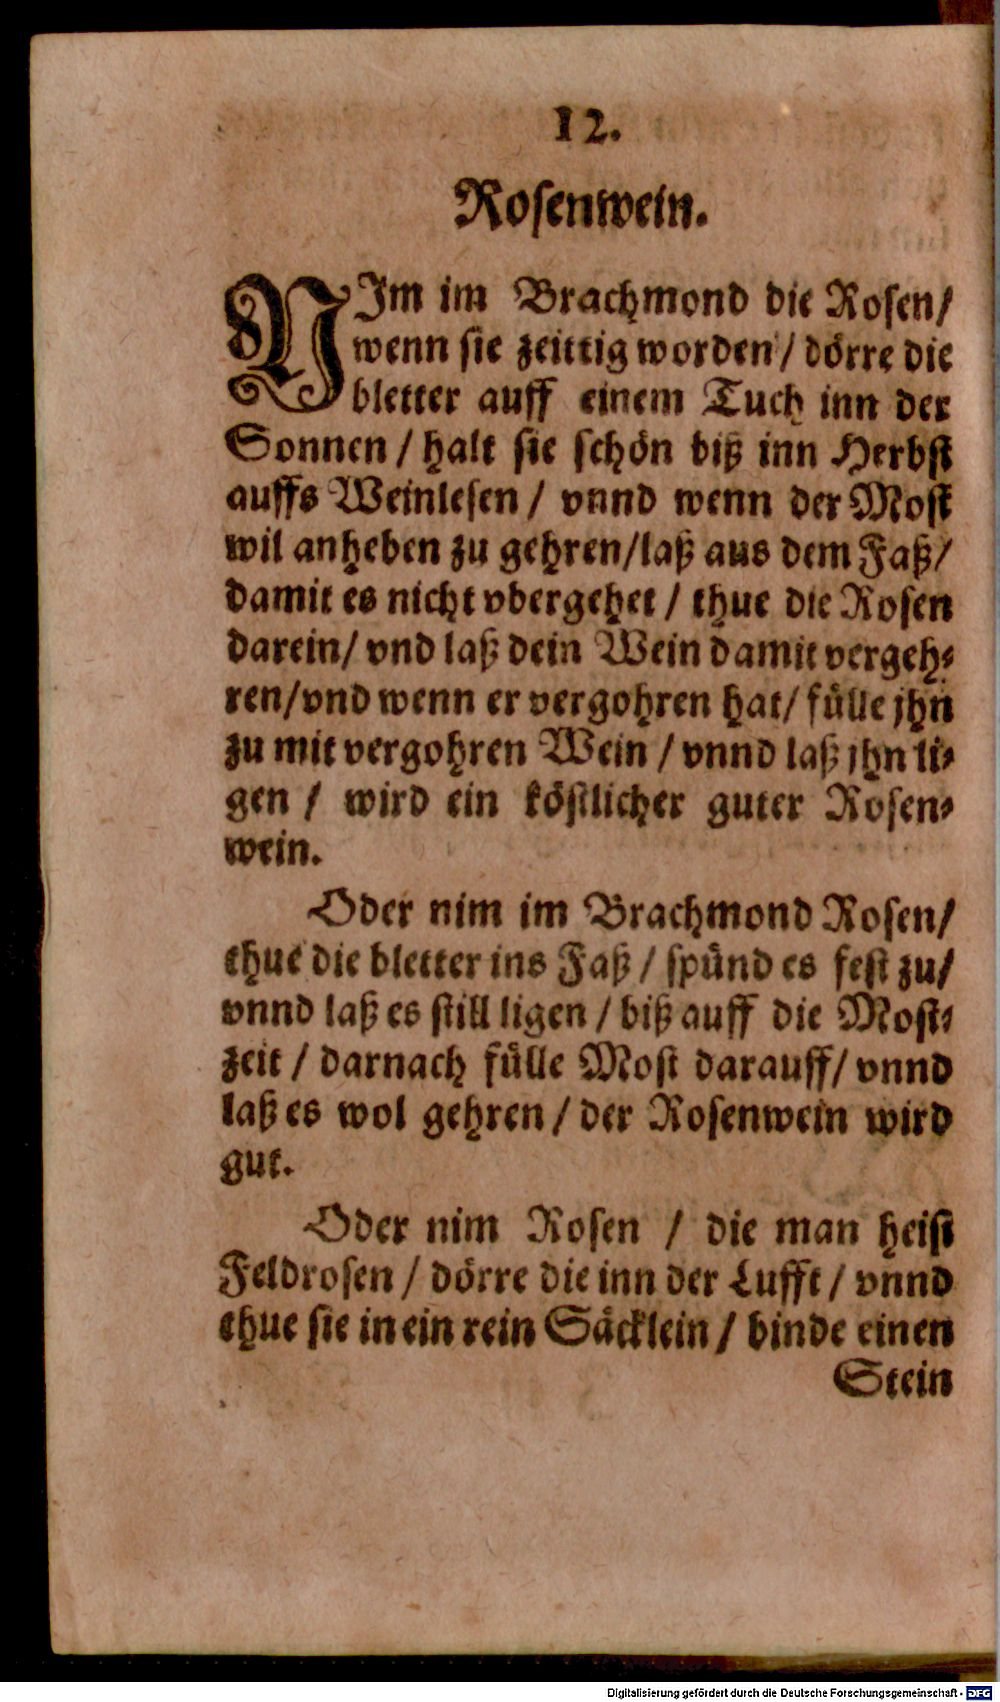 12.
Rosenwein.
NIm im Brachmond die Rosen/
wenn sie zeittig worden/ dörre die
bletter auff einem Tuch inn der
Sonnen/ halt sie schön biß inn Herbst
auffs Weinlesen/ vnnd wenn der Most
wil anheben zu gehren/laß aus dem Faß/
damit es nicht vbergehet/ thue die Rosen
darein/ vnd laß dein Wein damit vergeh⸗
ren/vnd wenn er vergohren hat/ fülle jhn
zu mit vergohren Wein/ vnnd laß jhn li⸗
gen/ wird ein köstlicher guter Rosen⸗
wein.
Oder nim im Brachmond Rosen/
thue die bletter ins Faß/ spünd es fest zu/
vnnd laß es still ligen/ biß auff die Most⸗
zeit/ darnach fülle Most darauff/ vnnd
laß es wol gehren/ der Rosenwein wird
gut.
Oder nim Rosen/ die man heist
Feldrosen/ dörre die inn der Lufft/ vnnd
thue sie in ein rein Säcklein/ binde einen
Stein
Digitalisierung gefördert durch die Deutsche Forschungsgemeinschaft - DFG